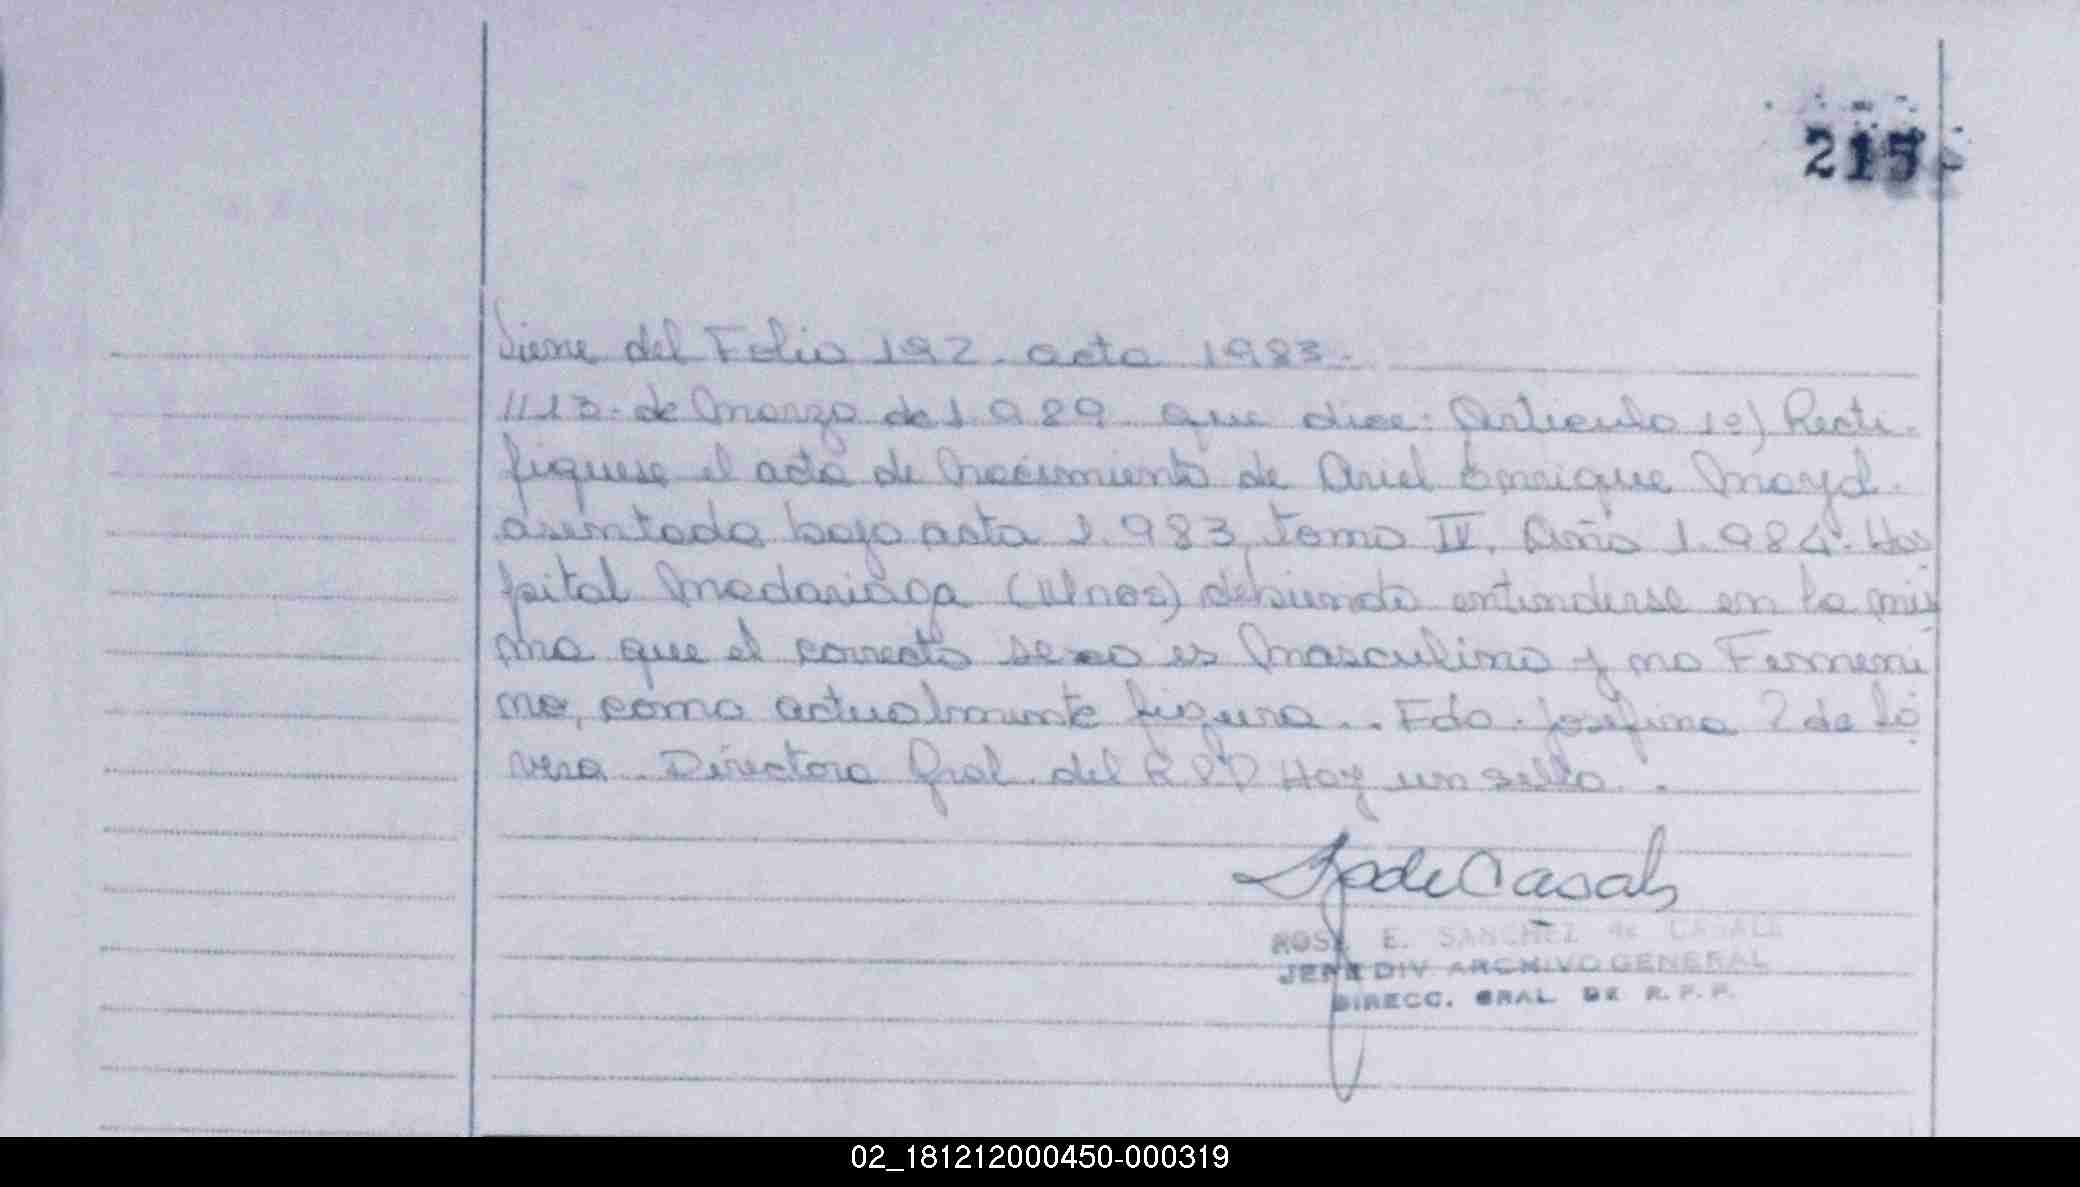 215
Viene del Folio 192. acta 1983.-
1113. de Marzo de 1.989. que dice: Articulo 1º) Recti-
fiquese el acta de Nacimiento de Ariel Enrique
asentada bajo acta 1.983, Tomo IV. Año 1.984. Hos
pital Madariaga (Unos) debiendo entenderse en la mis
ma que el correcto sexo es Masculino y no Femeni
no, como actualmente figura.. Fdo. Josefina de
Directora Gral. del R P P Hay un sello. .
ROSA E. SANCHEZ de CASALS
JEFE DIV. ARCHIVO GENERAL
DIRECC. GRAL. DE R. P. P.
02_181212000450-000319